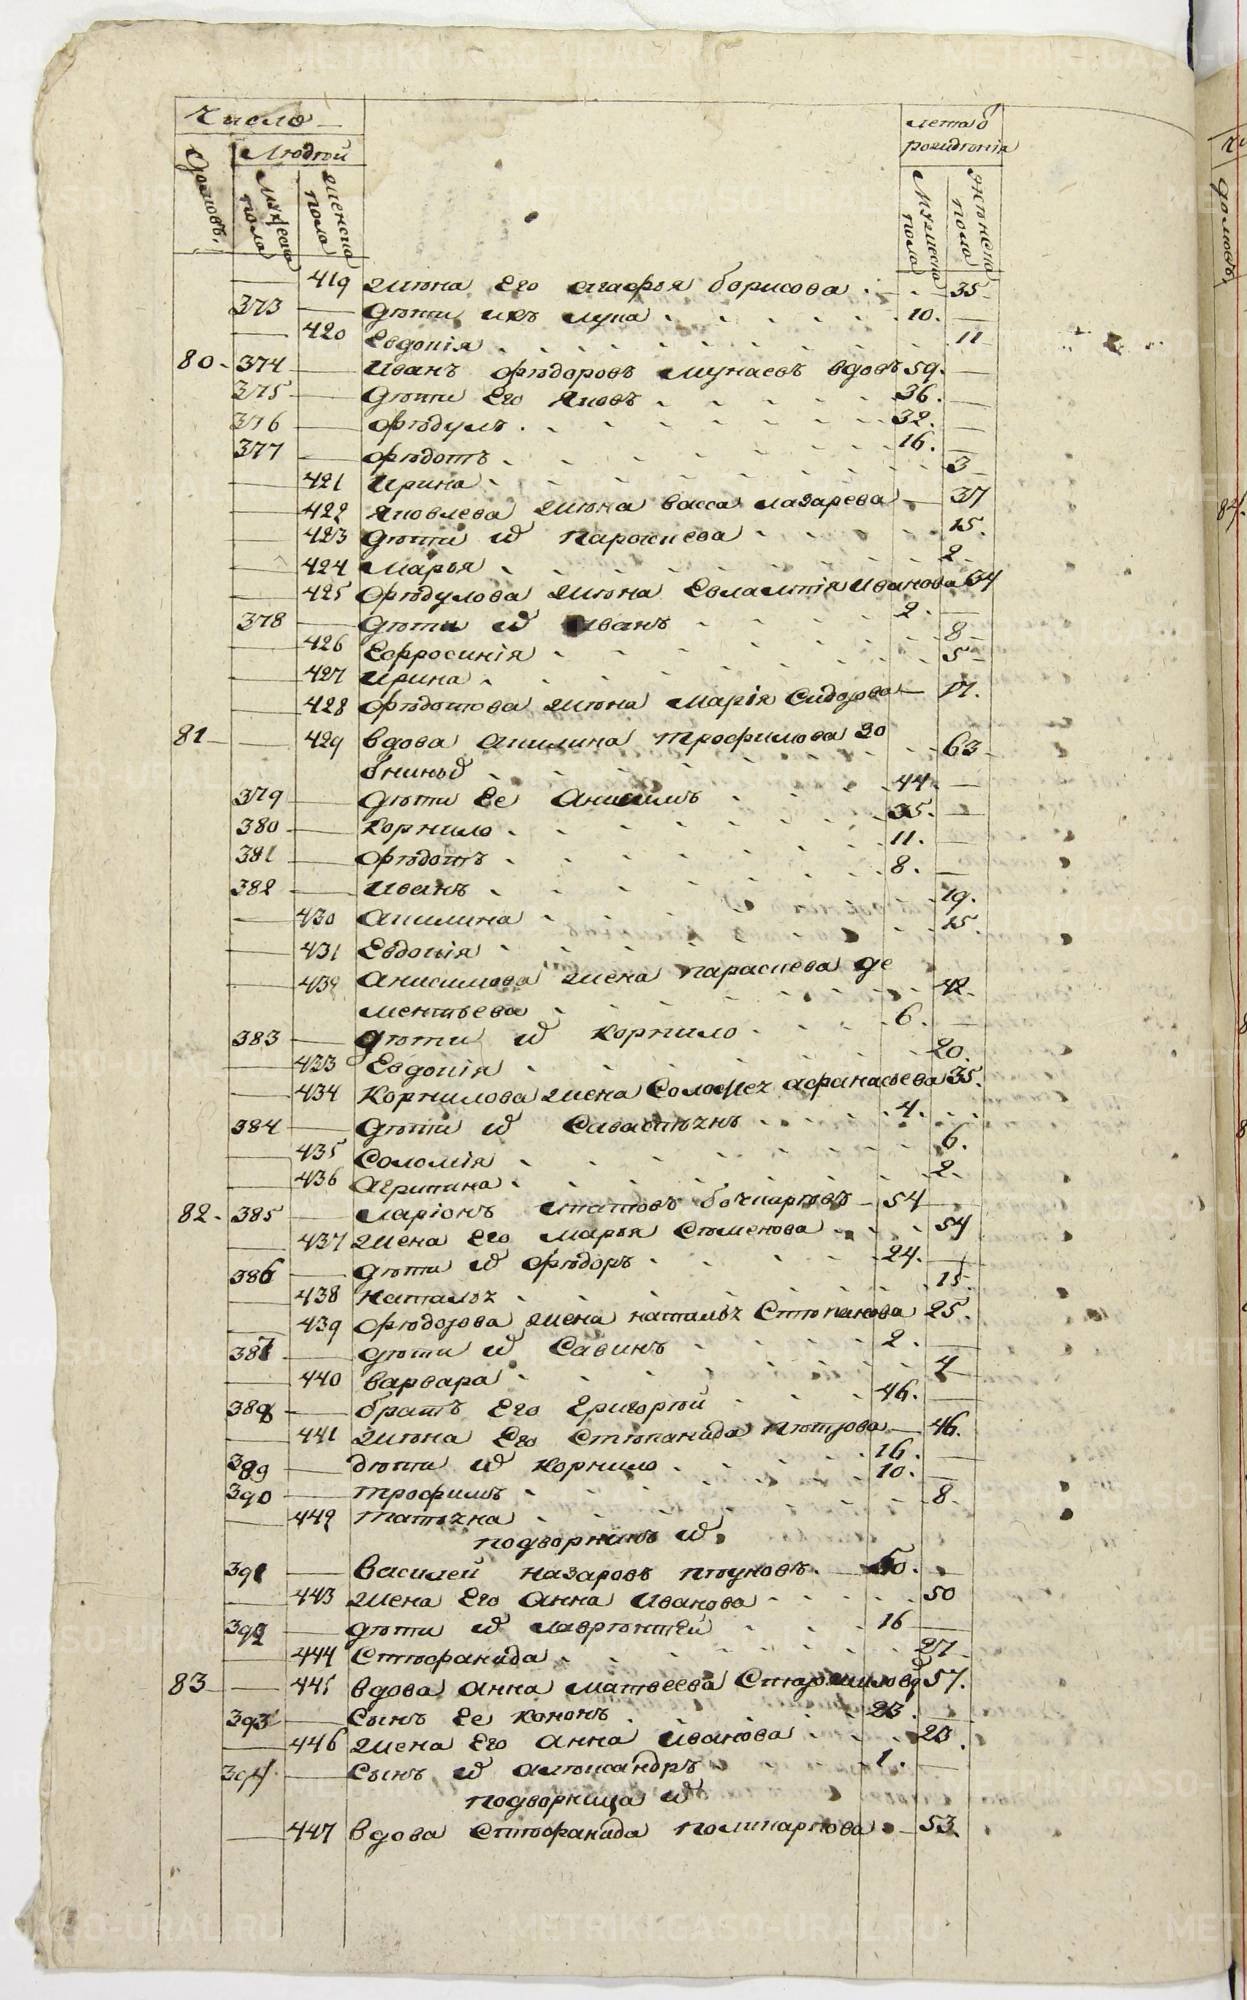 число
людей
лета о
рождения
домовъ
мужеска пола
женска пола
мужеска пола
женска пола
419 жена Его агафья борисова 35
373 дѣти ихъ лупа 10
420 Евдокія 11
80 374 Иванъ Федоровъ вдовъ 59
375 дѣти Его Яковъ 36
376 Федулъ 32
377 Федотъ 16
421 Ирина 3
422 Яковлева жена васса лазарева 37
423 дѣти и парасковья 15
424 марья 2
425 Федулова жена Евлампія иванова 34
378 дѣти их иванъ 2
426 Ефросинія 8
427 ирина 5
428 Федотова жена марія Сидорова 17
81 429 вдова акилина трофимова зо
бниныхъ 63
379 дѣти Ее анисимъ 44
380 корнило 35
381 Федотъ 11
382 Иванъ 8
430 акилина 19
431 Евдокія 15
432 анисимова жена параскева де
ментьева 42
383 дѣти их корнило 6
433 Евдокія 20
434 корнилова жена Соломея афанасьева 35
384 дѣти их Савастьянъ 4
435 Соломія 6
436 агрипина 2
82 385 ларіонъ ипатовъ бочкаревъ 54
437 жена Его марья Семенова 54
386 дѣти их Федоръ 24
438 наталья 15
439 Федорова жена наталья Степанова 25
387 дѣти их Савинъ 2
440 варвара 4
388 братъ Его Григорей 46
441 жена Его Степанида петрова 46
389 дѣти их корнило 16
390 трофимъ 10
442 татьяна 8
подворники их
391 василей назаровъ 50
443 жена Его анна иванова 50
392 дѣти их лаврентей 16
444 Стефанида 27
83 445 вдова анна матвеева 57
393 Сынъ Ее кононъ 23
446 жена Его анна иванова 23
394 Сынъ их александръ 1
подворница их
447 вдова Стефанида поликарпова 53
METRIKI.GASO-URAL.RU